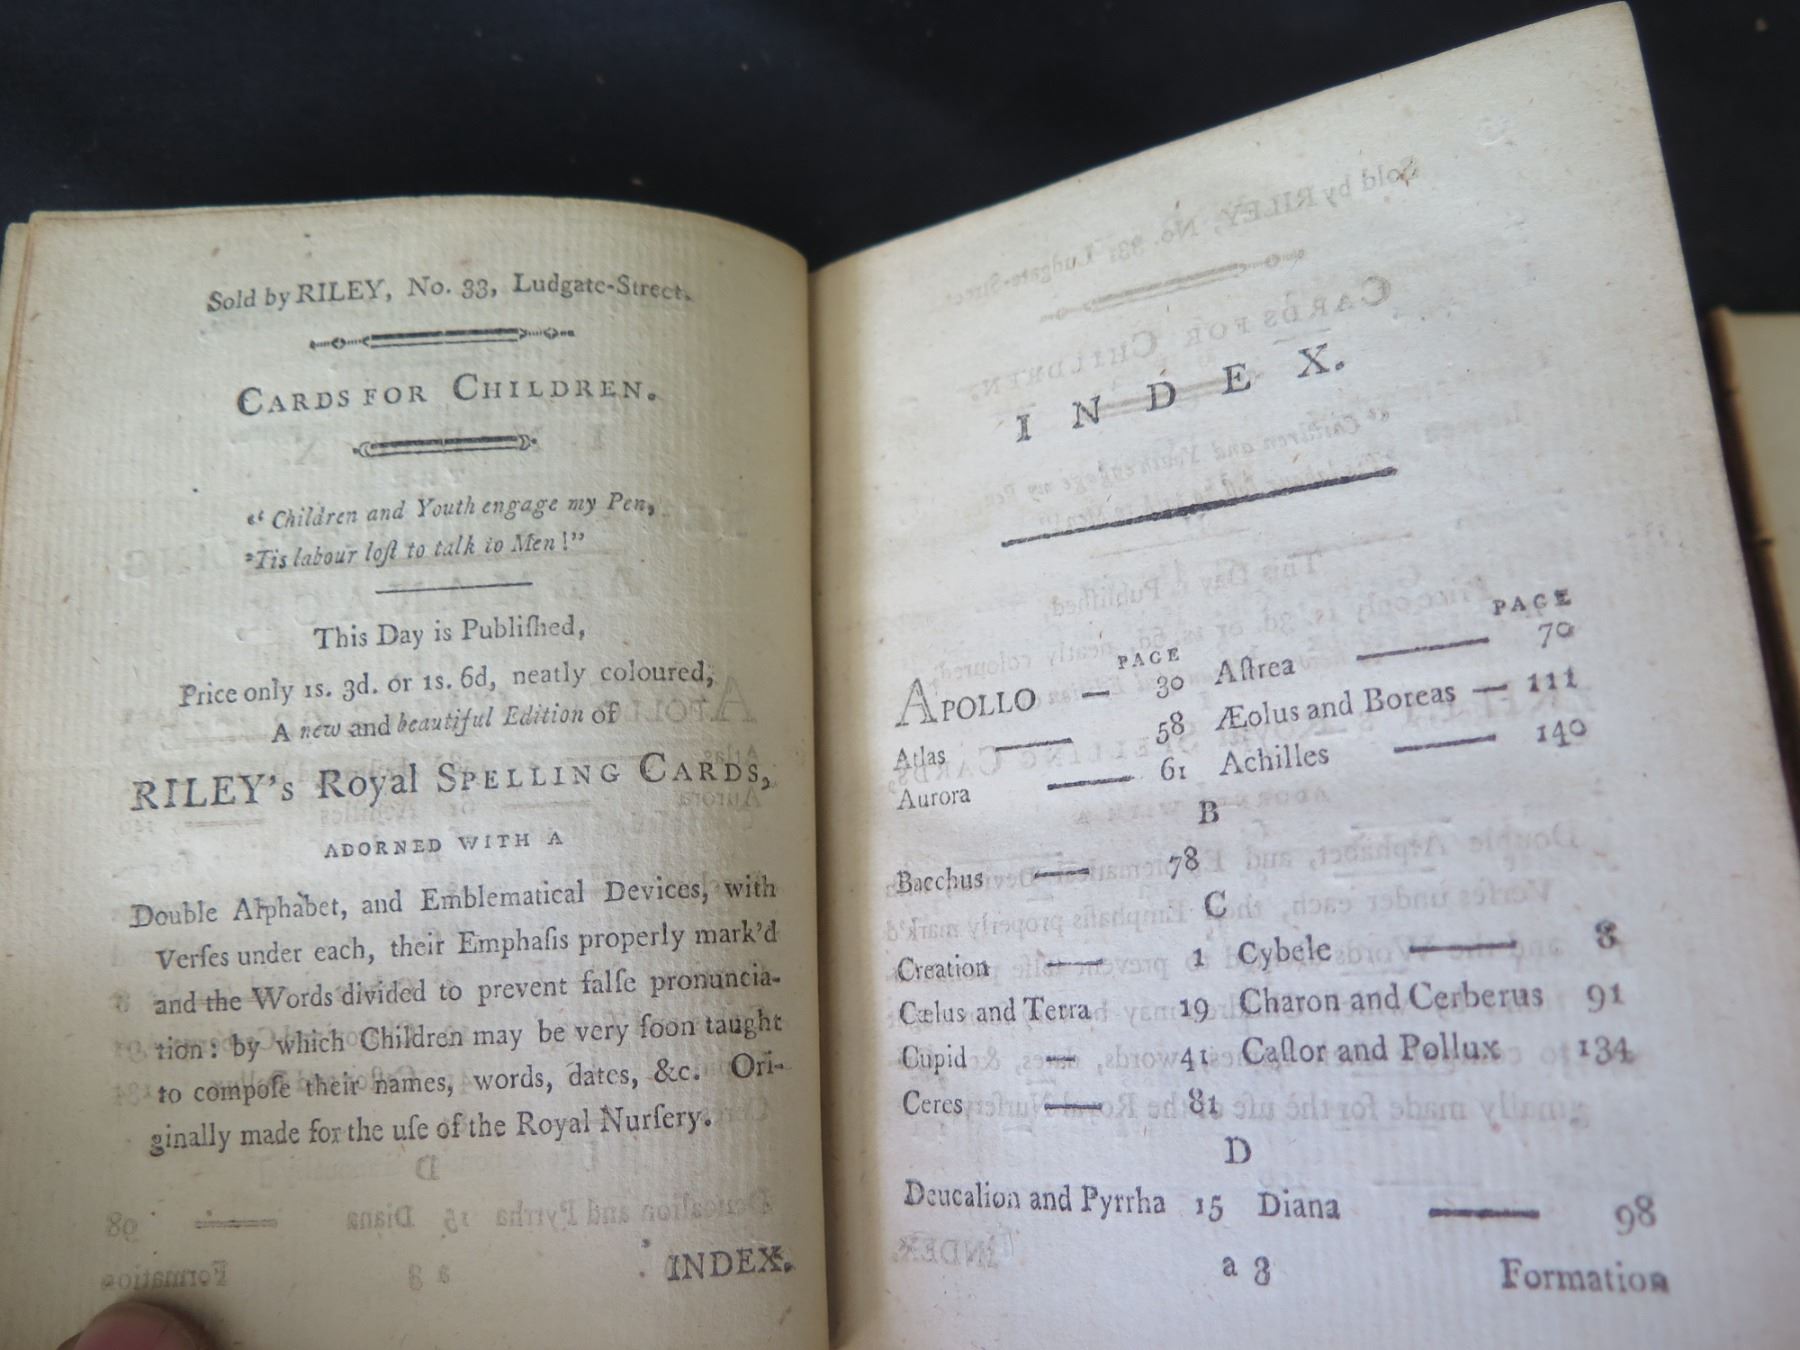 Sold by RILEY, No. 33, Ludgate-Street.
CARDS FOR CHILDREN.
“ Children and Youth engage my Pen,
’Tis labour loſt to talk to Men!”
This Day is Publiſhed,
Price only 1s. 3d. or 1s. 6d, neatly coloured,
A new and beautiful Edition of
RILEY’s Royal SPELLING CARDS,
ADORNED WITH A
Double Alphabet, and Emblematical Devices, with
Verſes under each, their Emphaſis properly mark’d
and the Words divided to prevent falſe pronuncia-
tion: by which Children may be very ſoon taught
to compoſe their names, words, dates, &c. Ori-
ginally made for the uſe of the Royal Nurſery.
INDEX.
INDEX.
PAGE
APOLLO — 30
Atlas — 58
Aurora — 61
PAGE
Aſtrea — 70
Æolus and Boreas — 111
Achilles — 140
B
Bacchus — 78
C
Creation — 1 Cybele — 8
Cælus and Terra 19 Charon and Cerberus 91
Cupid — 41 Caſtor and Pollux 134
Ceres — 81
D
Deucalion and Pyrrha 15 Diana — 98
a 3 Formation